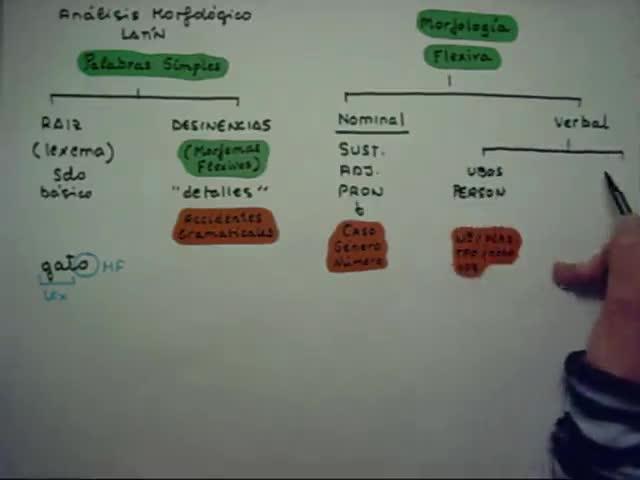 Análisis Morfológico
LATÍN
Palabras Simples
RAIZ
(lexema)
Sdo
básico
DESINENCIAS
(Morfemas
Flexivos)
"detalles"
Accidentes
Gramaticales
gato MF
Lex
Morfología
Flexiva
Nominal
SUST.
ADJ.
PRON
Caso
Género
Número
Verbal
UBOS
PERSON